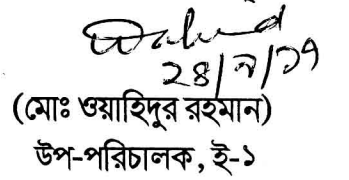 ২৪/৭/১৭
(মোঃ ওয়াহিদুর রহমান)
উপ-পরিচালক, ই-১